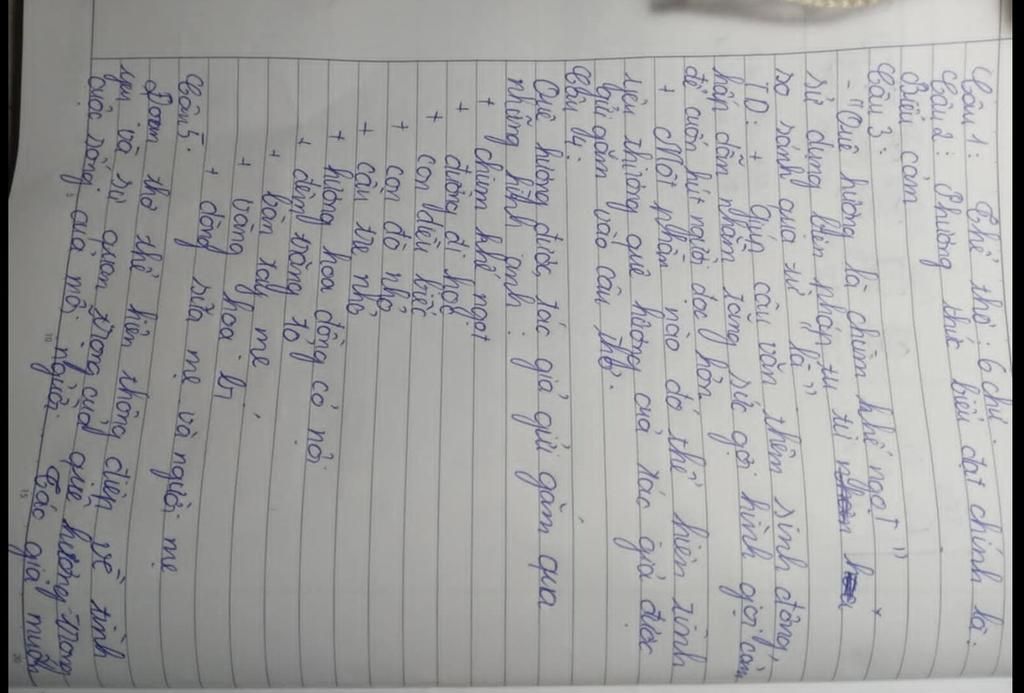 Câu 1: Thể thơ: 6 chữ.
Câu 2: Phương thức biểu đạt chính là:
Biểu cảm
Câu 3:
- "Quê hương là chùm khế ngọt"
sử dụng biện pháp tu từ
so sánh qua từ "là"
TD: + Giúp câu văn thêm sinh động,
hấp dẫn nhằm tăng sức gợi hình gợi cảm
để cuốn hút người đọc hơn
+ Một phần nào đó thể hiện tình
yêu thương quê hương của tác giả được
gửi gắm vào câu thơ.
Câu 4:
Quê hương được tác giả gửi gắm qua
những hình ảnh:
+ chùm khế ngọt
+ đường đi học
+ con diều biếc
+ con đò nhỏ
+ cầu tre nhỏ
+ hương hoa đồng cỏ nội
+ đêm trăng tỏ
+ bàn tay mẹ
+ vàng hoa bí
+ dòng sữa mẹ và người mẹ
Câu 5:
Đoạn thơ thể hiện thông điệp về tình
yêu và sự quan trọng của quê hương trong
cuộc sống của mỗi người. Tác giả muốn
10
15
20